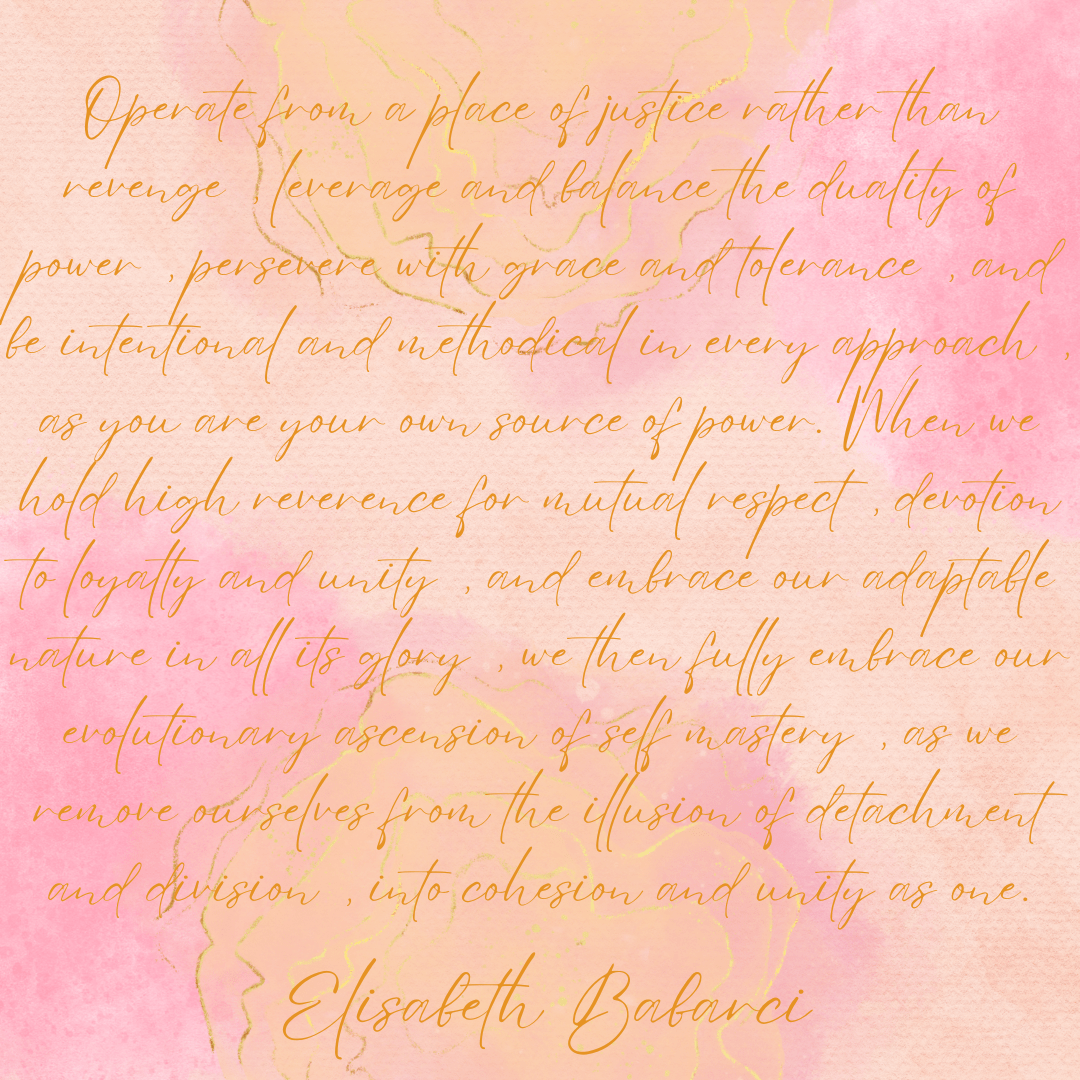 Operate from a place of justice rather than
revenge , leverage and balance the duality of
power , persevere with grace and tolerance , and
be intentional and methodical in every approach ,
as you are your own source of power. When we
hold high reverence for mutual respect , devotion
to loyalty and unity , and embrace our adaptable
nature in all its glory , we then fully embrace our
evolutionary ascension of self mastery , as we
remove ourselves from the illusion of detachment
and division , into cohesion and unity as one.
Elisabeth Babarci